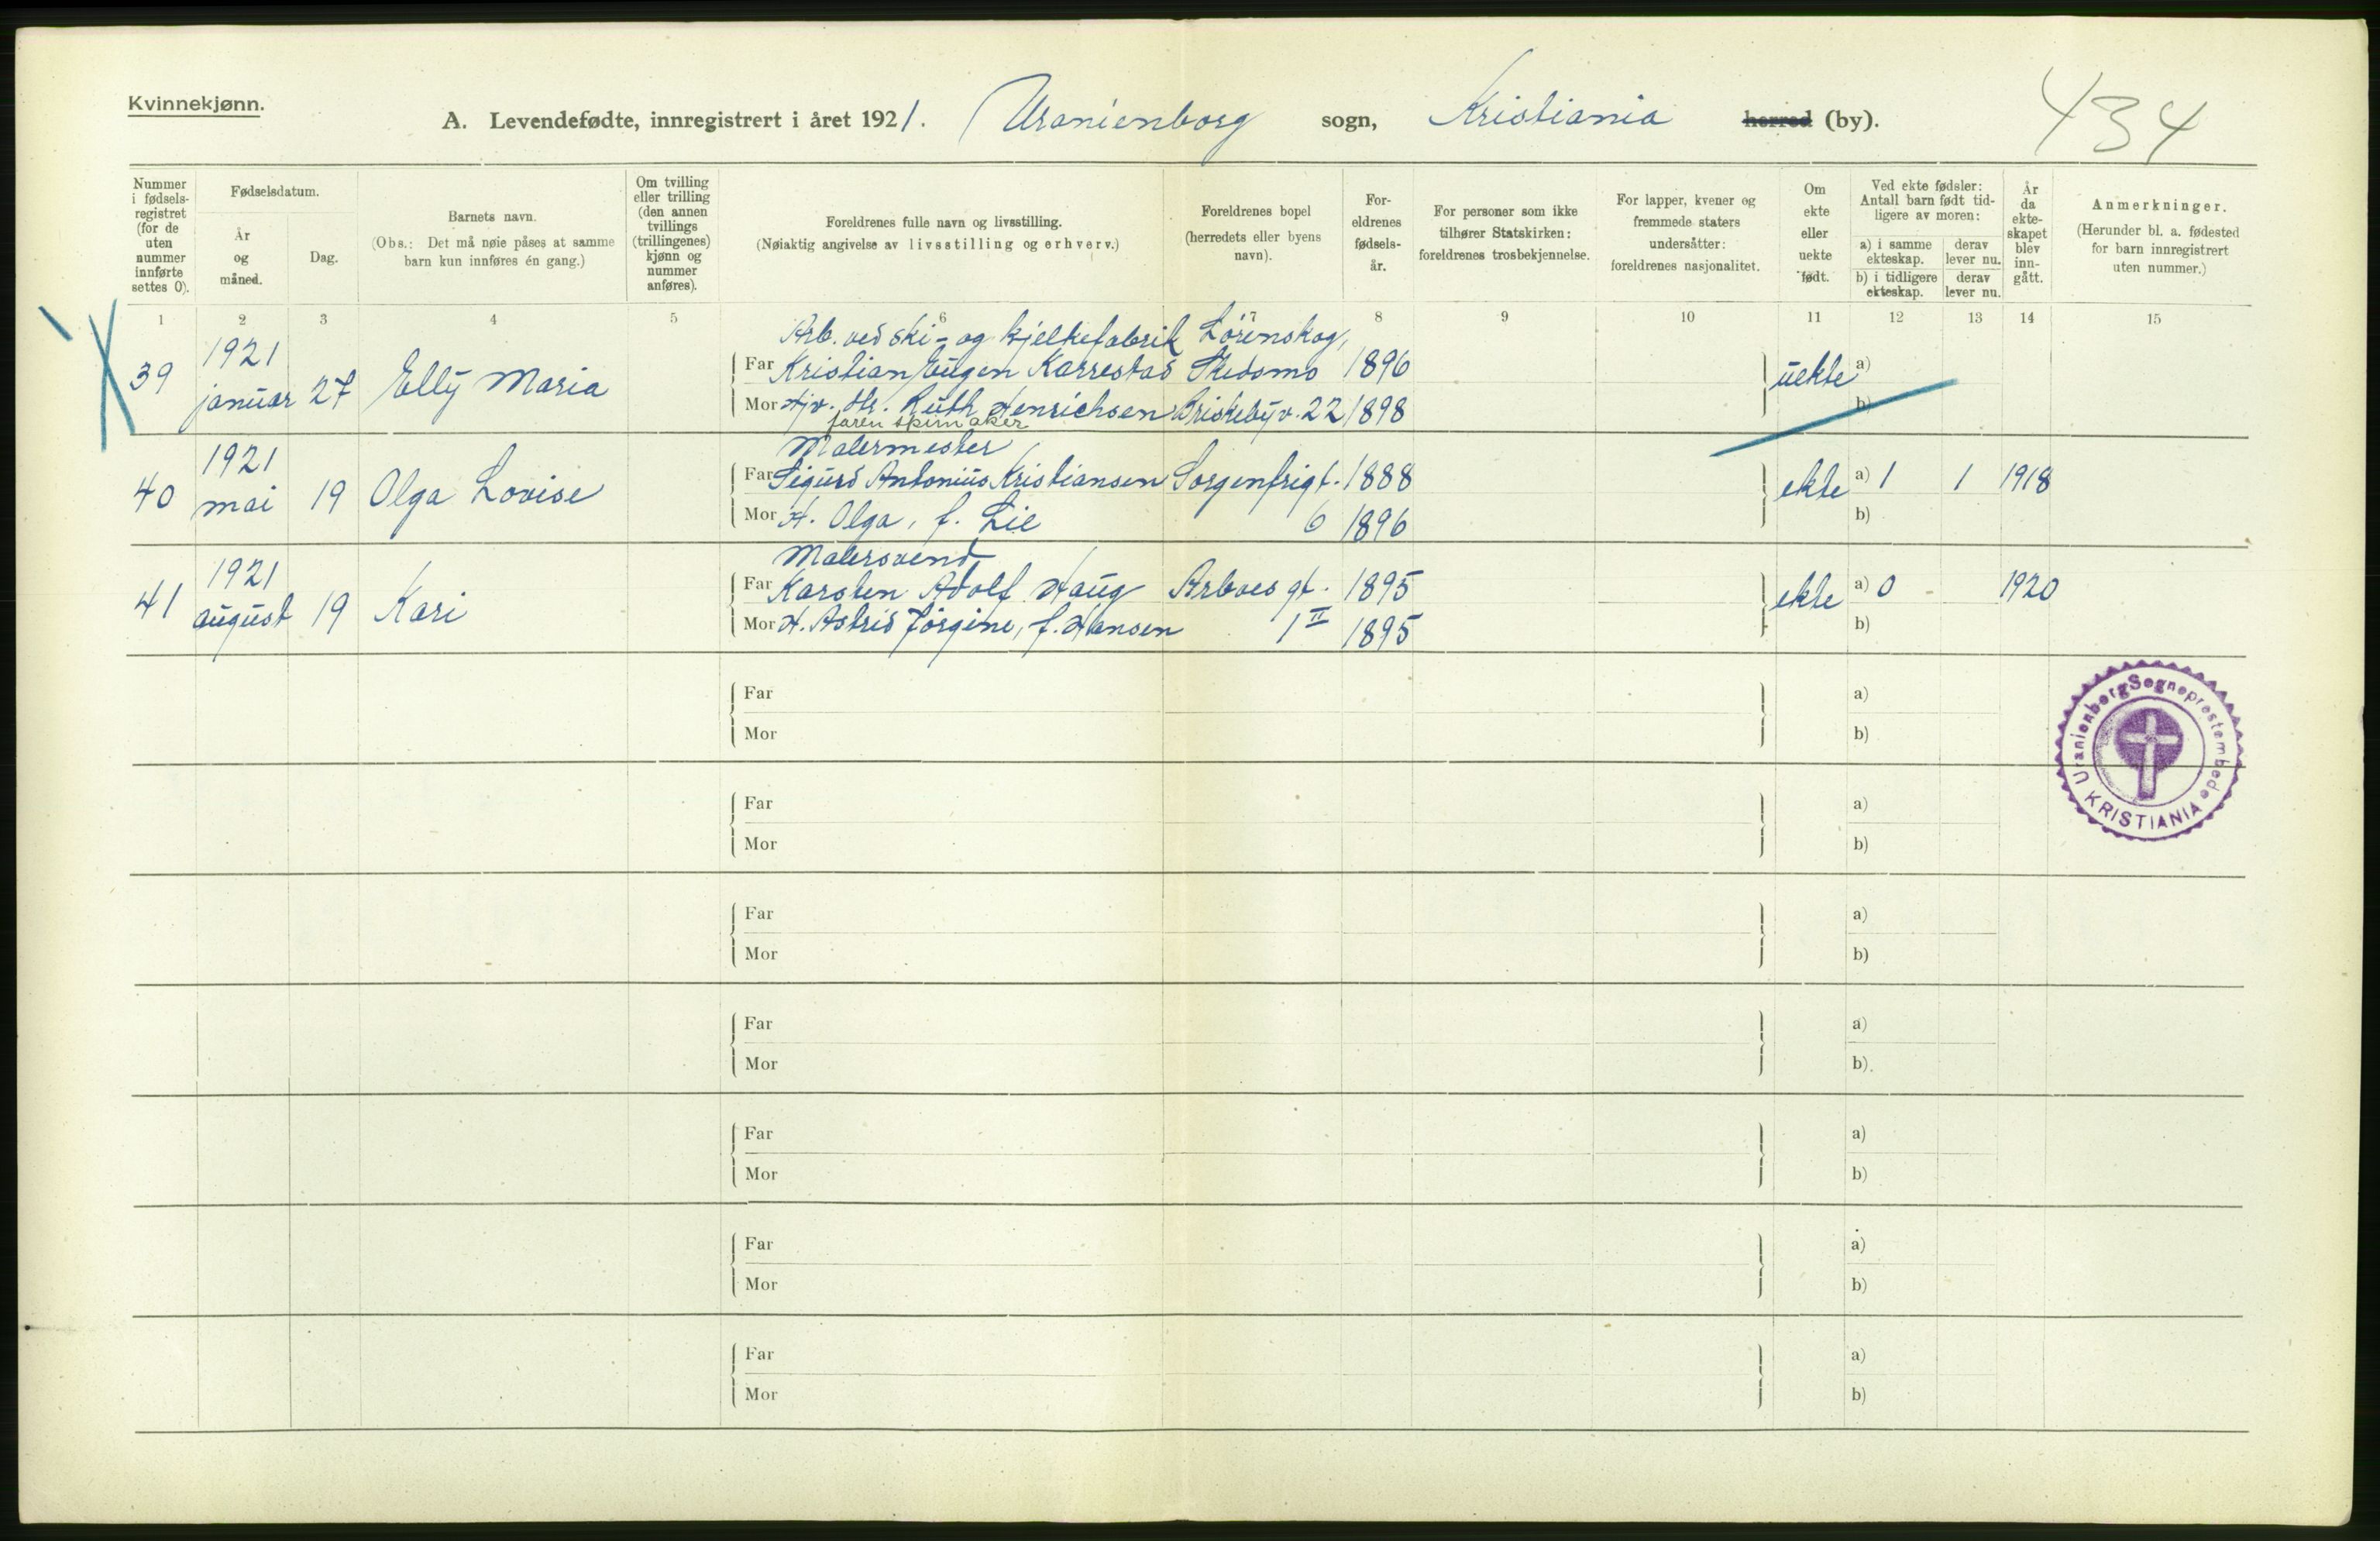 Kvinnekjønn.
A. Levendefødte, innregistrert i året 1921. Uranienborg sogn, Kristiania herred (by).
434
Nummer i fødsels-registret (for de uten nummer innførte settes 0).
Fødselsdatum.
År og måned.
Dag.
Barnets navn.
(Obs.: Det må nøie påses at samme barn kun innføres én gang.)
Om tvilling eller trilling (den annen tvillings (trillingenes) kjønn og nummer anføres).
Foreldrenes fulle navn og livsstilling.
(Nøiaktig angivelse av livsstilling og erhverv.)
Foreldrenes bopel (herredets eller byens navn).
For-eldrenes fødsels-år.
For personer som ikke tilhører Statskirken: foreldrenes trosbekjennelse.
For lapper, kvener og fremmede staters undersåtter: foreldrenes nasjonalitet.
Om ekte eller uekte født.
Ved ekte fødsler: Antall barn født tid-ligere av moren:
a) i samme ekteskap.
derav lever nu.
b) i tidligere ekteskap.
derav lever nu.
År da ekte-skapet blev inn-gått.
Anmerkninger.
(Herunder bl. a. fødested for barn innregistrert uten nummer.)
1 2 3 4 5 6 7 8 9 10 11 12 13 14 15
Arb. ved ski- og kjelkefabrik Lørenskog,
39 1921 januar 27 Elly Maria
Far Kristian Eugen Karrestad Skedsmo 1896 uekte a)
Mor Hjv. Ruth Henrichsen Briskebyv. 22 1898 b)
faren skimaker
Malermester
40 1921 mai 19 Olga Lovise
Far Sigurd Antonius Kristiansen Sorgenfrigt. 1888 ekte a) 1 1 1918
Mor H. Olga, f. Lie 6 1896 b)
Malersvend
41 1921 august 19 Kari
Far Karsten Adolf Haug Arboes gt. 1895 ekte a) 0 - 1920
Mor H. Astrid Jørgine, f. Hansen 1 II 1895 b)
Far a)
Mor b)
Uranienborg Sogneprestembede
KRISTIANIA
Far a)
Mor b)
Far a)
Mor b)
Far a)
Mor b)
Far a)
Mor b)
Far a)
Mor b)
Far a)
Mor b)